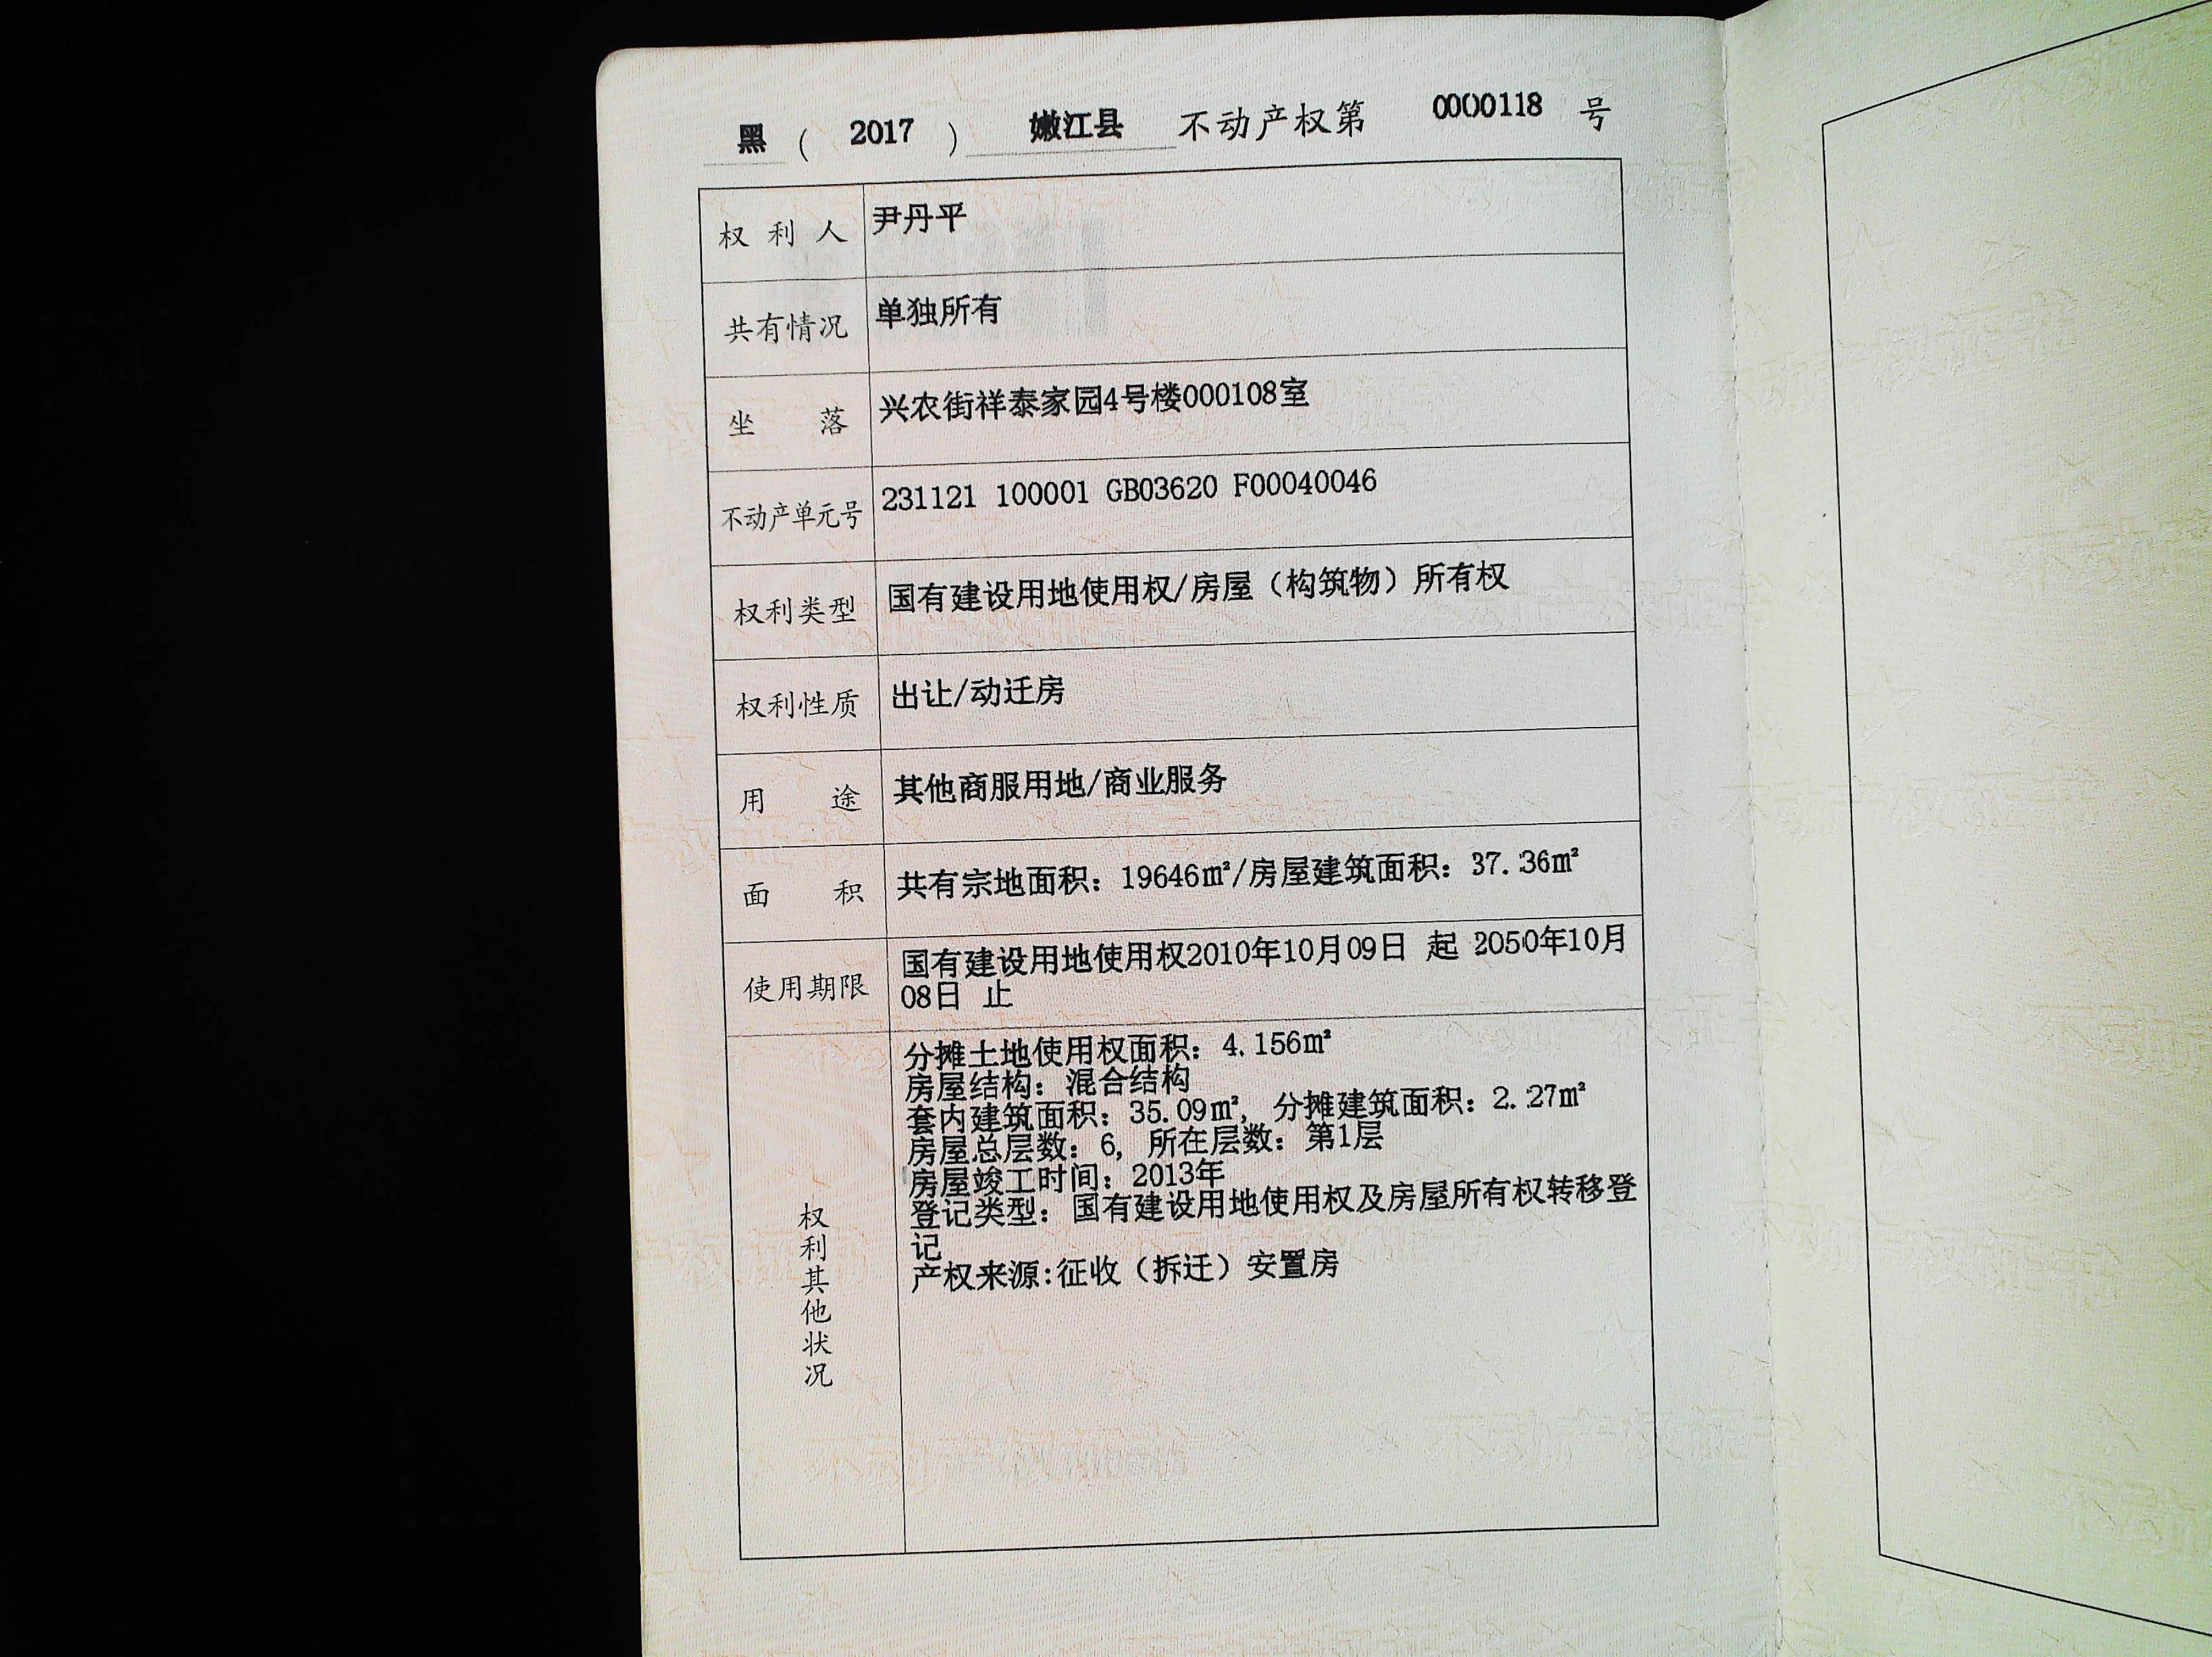 黑 ( 2017 ) 嫩江县 不动产权第 0000118 号
权利人 尹丹平
共有情况 单独所有
坐落 兴农街祥泰家园4号楼000108室
不动产单元号 231121 100001 GB03620 F00040046
权利类型 国有建设用地使用权/房屋（构筑物）所有权
权利性质 出让/动迁房
用途 其他商服用地/商业服务
面积 共有宗地面积：19646㎡/房屋建筑面积：37.36㎡
使用期限 国有建设用地使用权2010年10月09日 起 2050年10月
08日 止
权利其他状况
分摊土地使用权面积：4.156㎡
房屋结构：混合结构
套内建筑面积：35.09㎡，分摊建筑面积：2.27㎡
房屋总层数：6，所在层数：第1层
房屋竣工时间：2013年
登记类型：国有建设用地使用权及房屋所有权转移登
记
产权来源:征收（拆迁）安置房